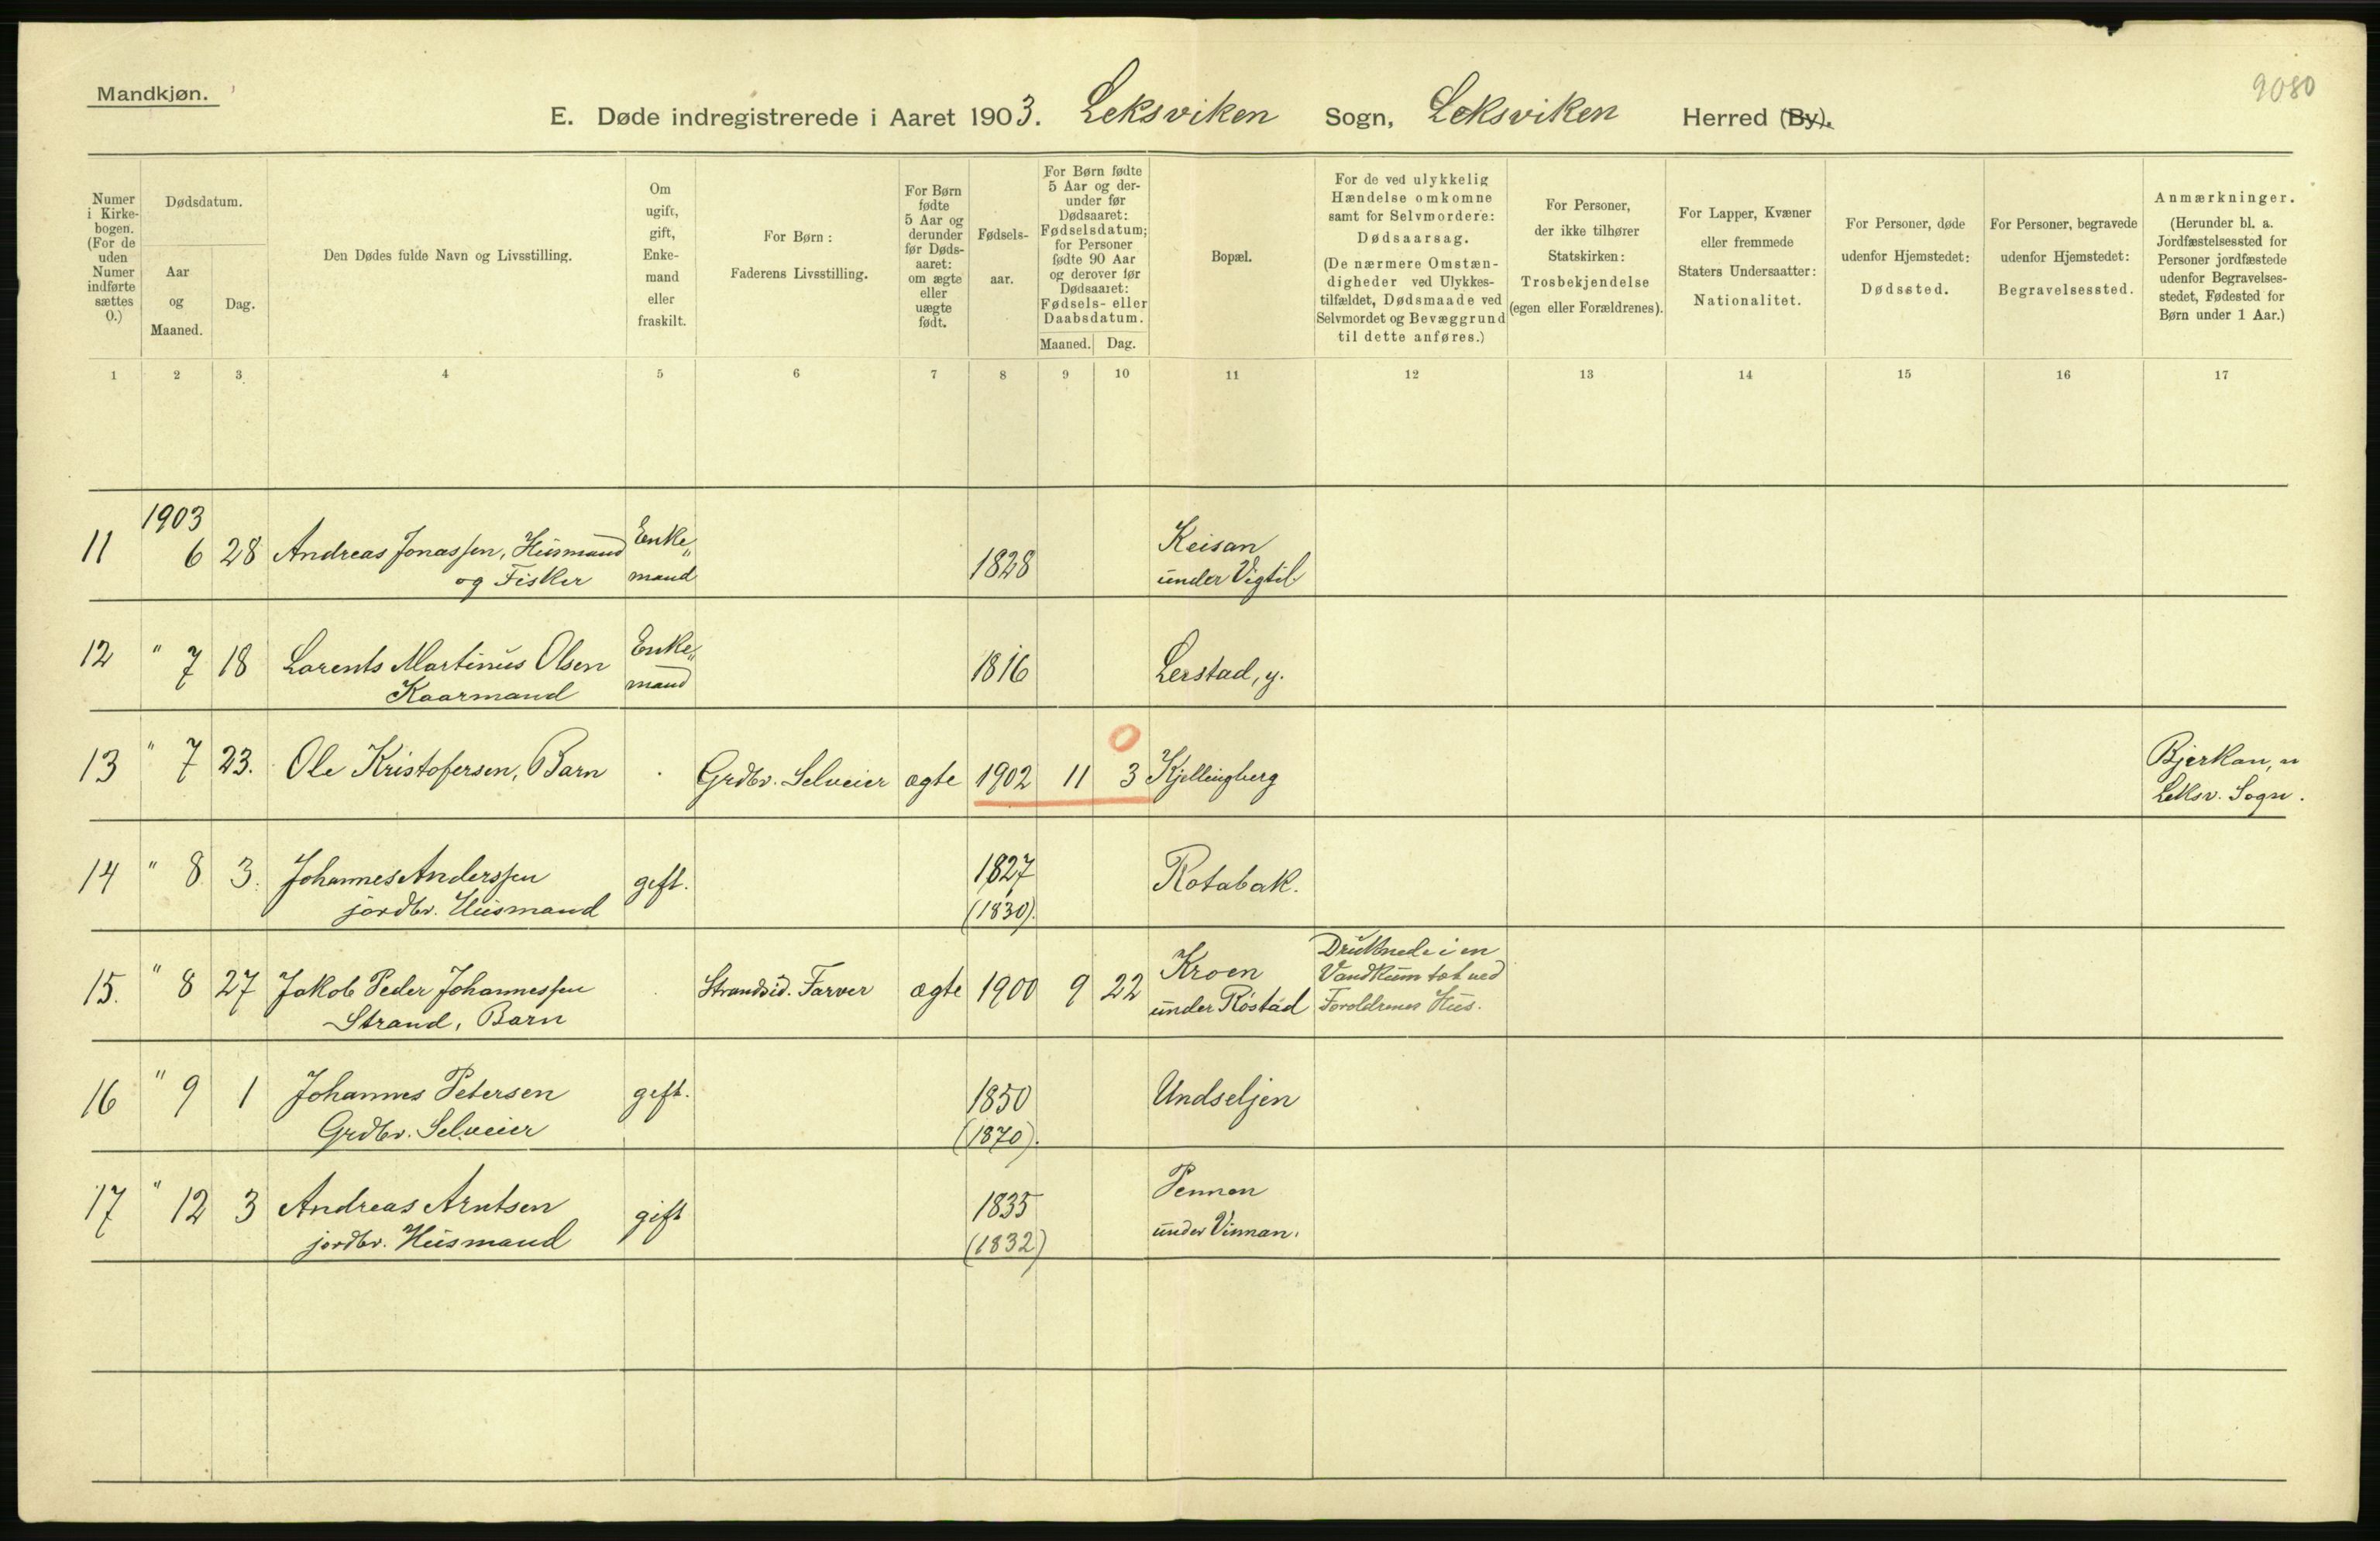 Mandkjøn.
9080
E. Døde indregistrerede i Aaret 1903. Leksviken Sogn, Leksviken Herred (By).
Numer i Kirke-bogen. (For de uden Numer indførte sættes 0.)
Dødsdatum.
Aar og Maaned.
Dag.
Den Dødes fulde Navn og Livsstilling.
Om ugift, gift, Enke-mand eller fraskilt.
For Børn: Faderens Livsstilling.
For Børn fødte 5 Aar og derunder før Døds-aaret: om ægte eller uægte født.
Fødsels-aar.
For Børn fødte 5 Aar og der-under før Dødsaaret: Fødselsdatum; for Personer fødte 90 Aar og derover før Dødsaaret: Fødsels- eller Daabsdatum.
Maaned. Dag.
Bopæl.
For de ved ulykkelig Hændelse omkomne samt for Selvmordere: Dødsaarsag. (De nærmere Omstæn-digheder ved Ulykkes-tilfældet, Dødsmaade ved Selvmordet og Bevæggrund til dette anføres.)
For Personer, der ikke tilhører Statskirken: Trosbekjendelse (egen eller Forældrenes).
For Lapper, Kvæner eller fremmede Staters Undersaatter: Nationalitet.
For Personer, døde udenfor Hjemstedet: Dødssted.
For Personer, begravede udenfor Hjemstedet: Begravelsessted.
Anmærkninger. (Herunder bl. a. Jordfæstelsessted for Personer jordfæstede udenfor Begravelses-stedet, Fødested for Børn under 1 Aar.)
1 2 3 4 5 6 7 8 9 10 11 12 13 14 15 16 17
1903
11 6 28 Andreas Jonassen, Husmand Enke„ 1828 Keisan
og Fisker mand under Vigtil
12 " 7 18 Lorents Martinus Olsen Enke„ 1816 Lerstad, y.
Kaarmand mand
13 " 7 23. Ole Kristofersen, Barn Grdbr. Selveier ægte 1902 11 3 Kjellingberg Bjerkan, n
0
Leksv. Sogn.
14 " 8 3. Johannes Anderssen gift. 1827 Rotabak.
jordbr. Husmand (1830).
15. " 8 27 Jakob Peder Johannessen Strandsid. Farver ægte 1900 9 22 Kroen Druknede i en
Strand, Barn under Røstad Vandkum tæt ved
Forældrenes Hus.
16 " 9 1 Johannes Petersen gift. 1850 Undseljen
Grdbr. Selveier (1870).
17 " 12 3 Andreas Arntsen gift 1835 Pennen
jordbr. Husmand (1832) under Vinnan.